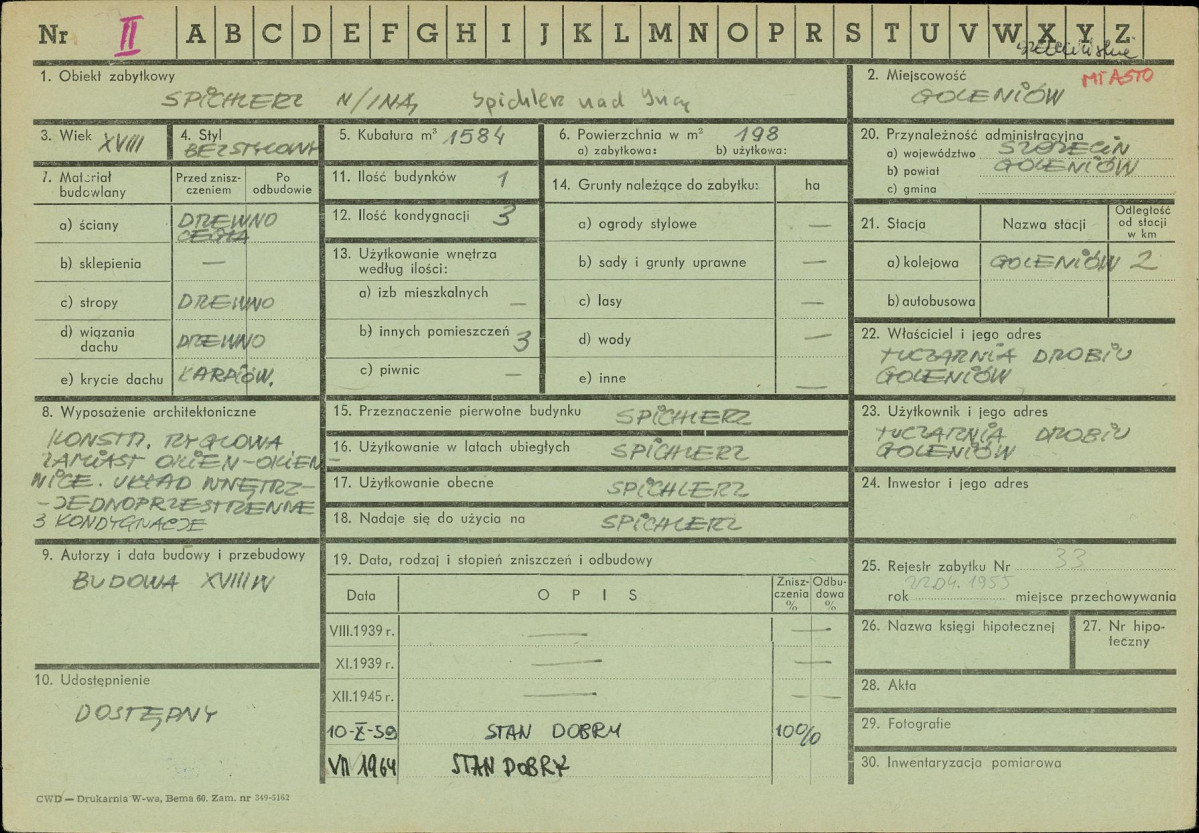 Nr II A B C D E F G H I J K L M N O P R S T U V W X Y Z
1. Obiekt zabytkowy
SPICHLERZ N/INĄ Spichlerz nad Iną
2. Miejscowość MIASTO
GOLENIÓW
3. Wiek XVIII
4. Styl
BEZSTYLOWY
5. Kubatura m³ 1584
6. Powierzchnia w m² 198
a) zabytkowa: b) użytkowa:
20. Przynależność administracyjna
a) województwo SZCZECIN
b) powiat GOLENIÓW
c) gmina
7. Materiał budowlany
Przed znisz-
czeniem
Po
odbudowie
a) ściany DREWNO
CEGŁA
b) sklepienia —
c) stropy DREWNO
d) wiązania
dachu DREWNO
e) krycie dachu KARPIÓW.
11. Ilość budynków 1
12. Ilość kondygnacji 3
13. Użytkowanie wnętrza
według ilości:
a) izb mieszkalnych —
b) innych pomieszczeń 3
c) piwnic —
14. Grunty należące do zabytku: ha
a) ogrody stylowe —
b) sady i grunty uprawne —
c) lasy —
d) wody —
e) inne —
21. Stacja Nazwa stacji Odległość
od stacji
w km
a) kolejowa GOLENIÓW 2
b) autobusowa
22. Właściciel i jego adres
TUCZARNIA DROBIU
GOLENIÓW
8. Wyposażenie architektoniczne
KONSTR. RYGLOWA
ZAMIAST OKIEN-OKIEN-
NICE. UKŁAD WNĘTRZ-
-JEDNOPRZESTRZENNE
3 KONDYGNACJE
15. Przeznaczenie pierwotne budynku SPICHLERZ
16. Użytkowanie w latach ubiegłych SPICHLERZ
17. Użytkowanie obecne SPICHLERZ
18. Nadaje się do użycia na SPICHLERZ
23. Użytkownik i jego adres
TUCZARNIA DROBIU
GOLENIÓW
24. Inwestor i jego adres
9. Autorzy i data budowy i przebudowy
BUDOWA XVIII W
10. Udostępnienie
DOSTĘPNY
19. Data, rodzaj i stopień zniszczeń i odbudowy
Data OPIS Znisz-
czenia
%
Odbu-
dowa
%
VIII.1939 r. — —
XI.1939 r. — —
XII.1945 r. — —
10-X-59 STAN DOBRY 100%
VII 1964 STAN DOBRY
25. Rejestr zabytku Nr 33
22.04.1955
rok miejsce przechowywania
26. Nazwa księgi hipotecznej
27. Nr hipo-
teczny
28. Akta
29. Fotografie
30. Inwentaryzacja pomiarowa
CWD — Drukarnia W-wa, Bema 60. Zam. nr 349-5162